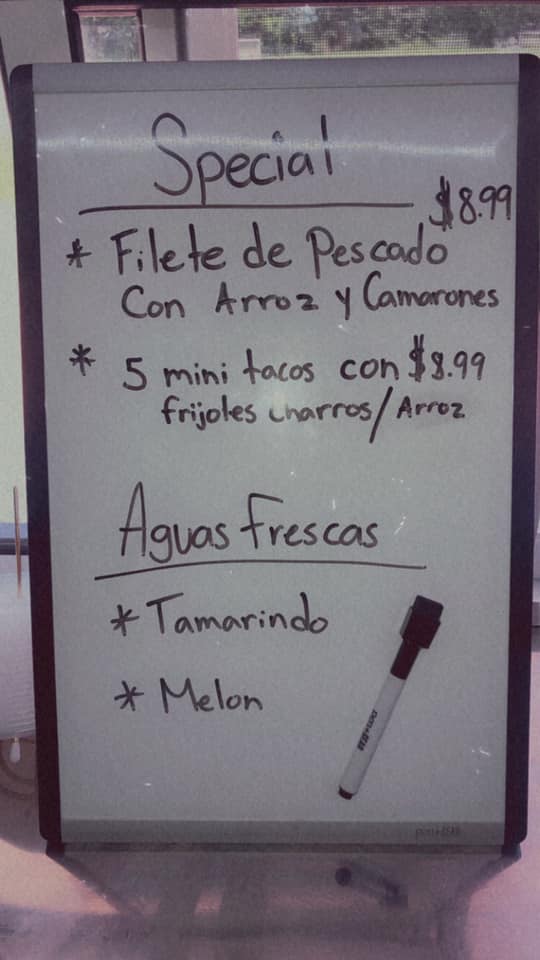 Special
$8.99
* Filete de Pescado
Con Arroz y Camarones
* 5 mini tacos con $8.99
frijoles charros/Arroz
Aguas Frescas
* Tamarindo
* Melon